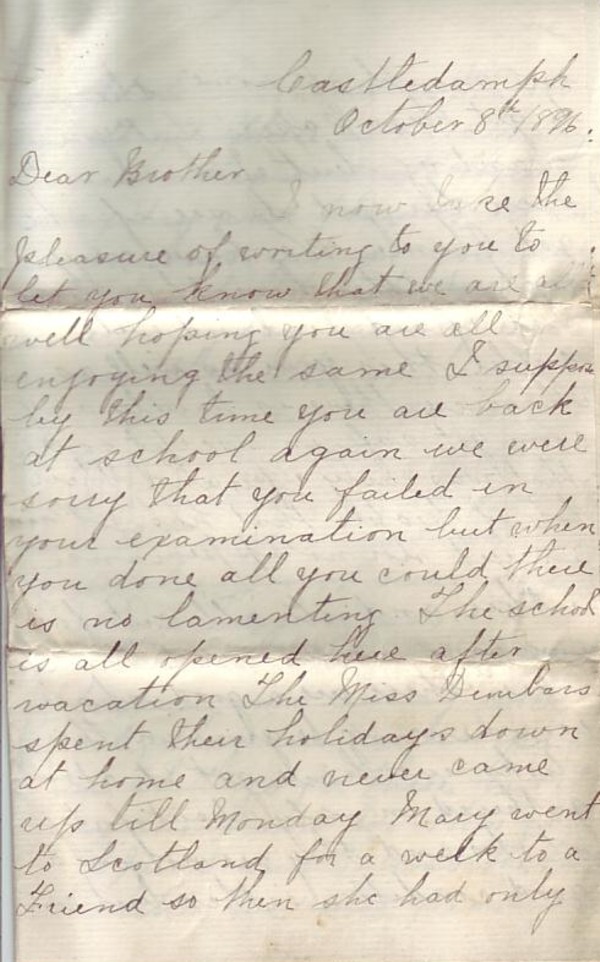 Castledamph
October 8th 1896.
Dear Brother
I now take the
pleasure of writing to you to
let you know that we are all
well hoping you are all
enjoying the same I suppose
by this time you are back
at school again we were
sorry that you failed in
your examination but when
you done all you could there
is no lamenting The school
is all opened here after
vacation The Miss Dunbars
spent their holidays down
at home and never came
up till Monday Mary went
to Scotland for a week to a
Friend so then she had only